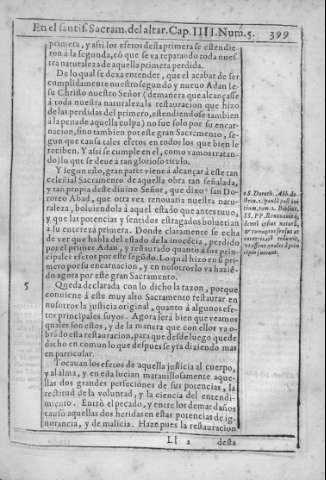 En el santis. Sacram. del altar. Cap. IIII. Num. 5. 399
primera, y assi los efetos desta primera se estendie
ron à la segunda, cõ que se va reparando toda nues
tra naturaleza de aquella primera perdida.
De lo qual se dexa entender, que el acabar de ser
cumplidamente nuestro segundo y nueuo Adan Ie-
su Christo nuestro Señor (de manera que alcançasse
à toda nuestra naturaleza la restauracion que hizo
de las perdidas del primero, estendiendose tambien
a la pena de aquella culpa) no fue solo por su encar-
nacion, sino tambien por este gran Sacramento, se-
gun que causa tales efectos en todos los que bien le
reciben. Y assi se cumple en el, como vamos tratan-
do, lo que se deue a tan glorioso titulo.
Y segun esto, gran parte viene à alcançar à este tan
celestial Sacramento de aquella obra tan señalada,
y tan propria deste diuino Señor, que dixo san Do-
roteo Abad, que otra vez renouaria nuestra natu-
raleza, boluiendola à aquel estado que antes tuuo,
y que las potencias y sentidos estragados boluerian
a su entereza primera. Donde claramente se echa
de ver que habla del estado de la inocẽcia, perdido
por el primer Adan, y restaurado quanto à sus prin-
cipales efetos por este segũdo. Lo qual hizo en si pri-
mero por su encarnacion, y en nosotros lo va hazié-
do agora por este gran Sacramento.
18. Doroth. Abb. do-
5 Queda declarada con lo dicho la razon, porque
conuiene à este muy alto Sacramento restaurar en
nosotros la justicia original, quanto à algunos efe-
tos principales suyos. Agora serà bien que veamos
quales son estos, y de la manera que con ellos va o-
brãdo esta restauracion, para que desde luego quede
dicho en comun lo que despues se yra diziendo mas
en particular.
Tocauan los efetos de aquella justicia al cuerpo,
y al alma, y en esta lucian marauillosamente aque-
llas dos grandes perfeciones de sus potencias, la
rectitud de la voluntad, y la ciencia del entendi-
miento. Entrò el pecado, y entre los demas daños
causò aquellas dos heridas en estas potencias de ig-
norancia, y de malicia. Haze pues la restauracion
Ll 2 desta